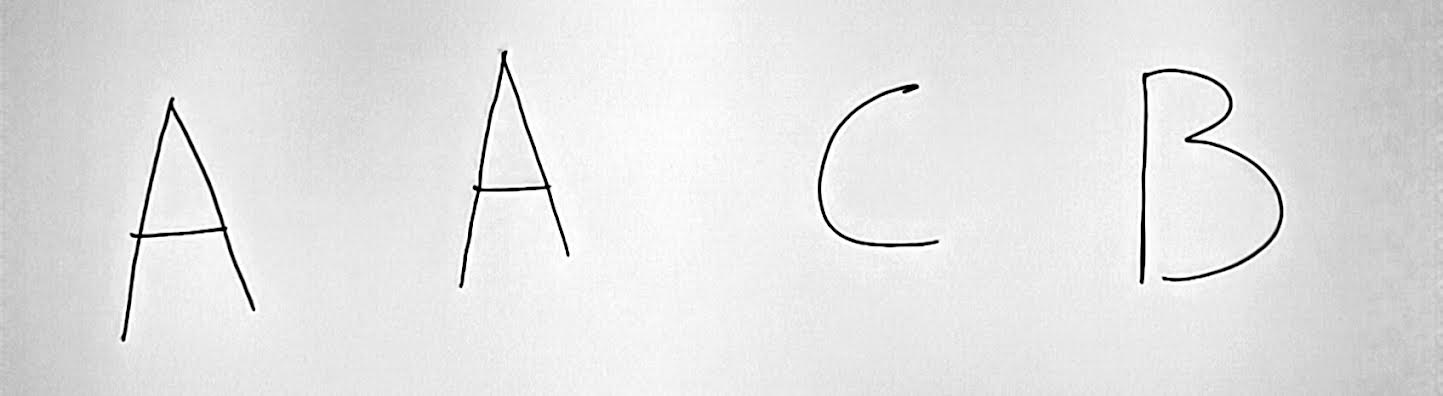 A A C B